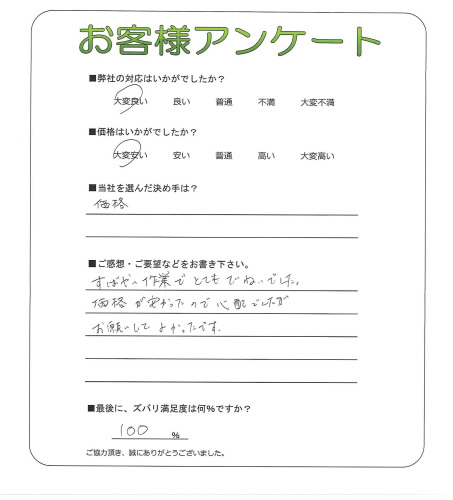 お客様アンケート
■弊社の対応はいかがでしたか？
大変良い 良い 普通 不満 大変不満
■価格はいかがでしたか？
大変安い 安い 普通 高い 大変高い
■当社を選んだ決め手は？
価格
■ご感想・ご要望などをお書き下さい。
すばやい作業でとてもていねいでした。
価格が安かったので心配でしたが
お願いしてよかったです.
■最後に、ズバリ満足度は何％ですか？
100 ％
ご協力頂き、誠にありがとうございました。